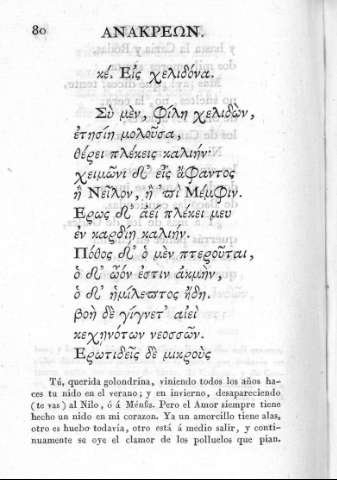 80 ΑΝΑΚΡΕΩΝ.
κέ. Εἰς χελιδόνα.
Σὺ μὲν, φίλη χελιδὼν,
ἐτησίη μολοῦσα,
θέρει πλέκεις καλιήν·
χειμῶνι δ' εἶς ἄφαντος
ἢ Νεῖλον, ἢ 'πὶ Μέμφιν.
Ερως δ' αἰεὶ πλέκει μευ
ἐν καρδίῃ καλιήν.
Πόθος δ' ὁ μὲν πτεροῦται,
ὁ δ' ὠόν ἐστιν ἀκμὴν,
ὁ δ' ἡμίλεπτος ἤδη.
βοὴ δὲ γίγνετ' αἰεὶ
κεχηνότων νεοσσῶν.
Ερωτιδεῖς δὲ μικροὺς
Tú, querida golondrina, viniendo todos los años ha-
ces tu nido en el verano; y en invierno, desapareciendo
(te vas) al Nilo, ó á Ménfis. Pero el Amor siempre tiene
hecho un nido en mi corazon. Ya un amorcillo tiene alas,
otro es huebo todavía, otro está á medio salir, y conti-
nuamente se oye el clamor de los polluelos que pian.